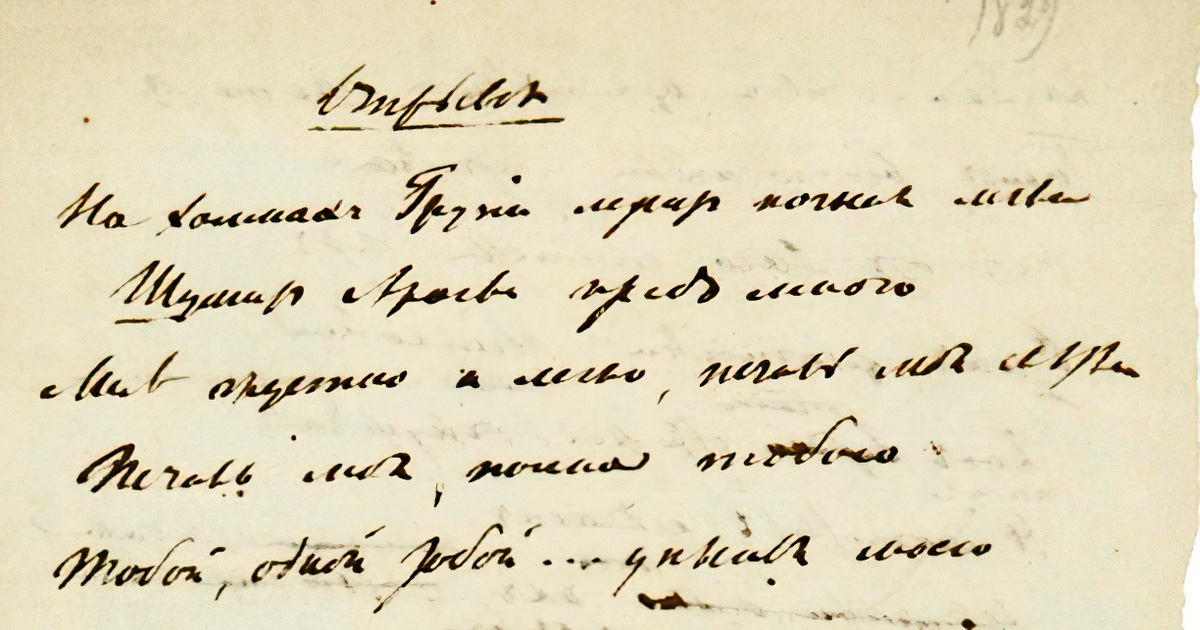 1829
Отрывокъ
На холмахъ Грузіи лежитъ ночная мгла
Шумитъ Арагва предо мною
Мнѣ грустно и легко, печаль моя свѣтла
Печаль моя, полна тобою
Тобой, одной тобой... унынья моего